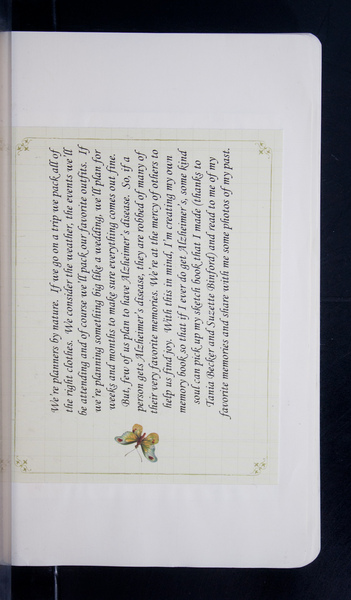 We're planners by nature. If we go on a trip we pack all of
the right clothes. We consider the weather, the events we'll
be attending and of course we'll pack our favorite outfits. If
we're planning something big like a wedding, we'll plan for
weeks and months to make sure everything comes out fine.
But, few of us plan to have Alzheimer's disease. So, if a
person gets Alzheimer's disease, they are robbed of many of
their very favorite memories. We're at the mercy of others to
help us find joy. With this in mind, I'm creating my own
memory book so that if I ever do get Alzheimer's, some kind
soul can pick up my sketch book that I made (thanks to
Tania Becker and Suzette Binford) and read to me of my
favorite memories and share with me some photos of my past.